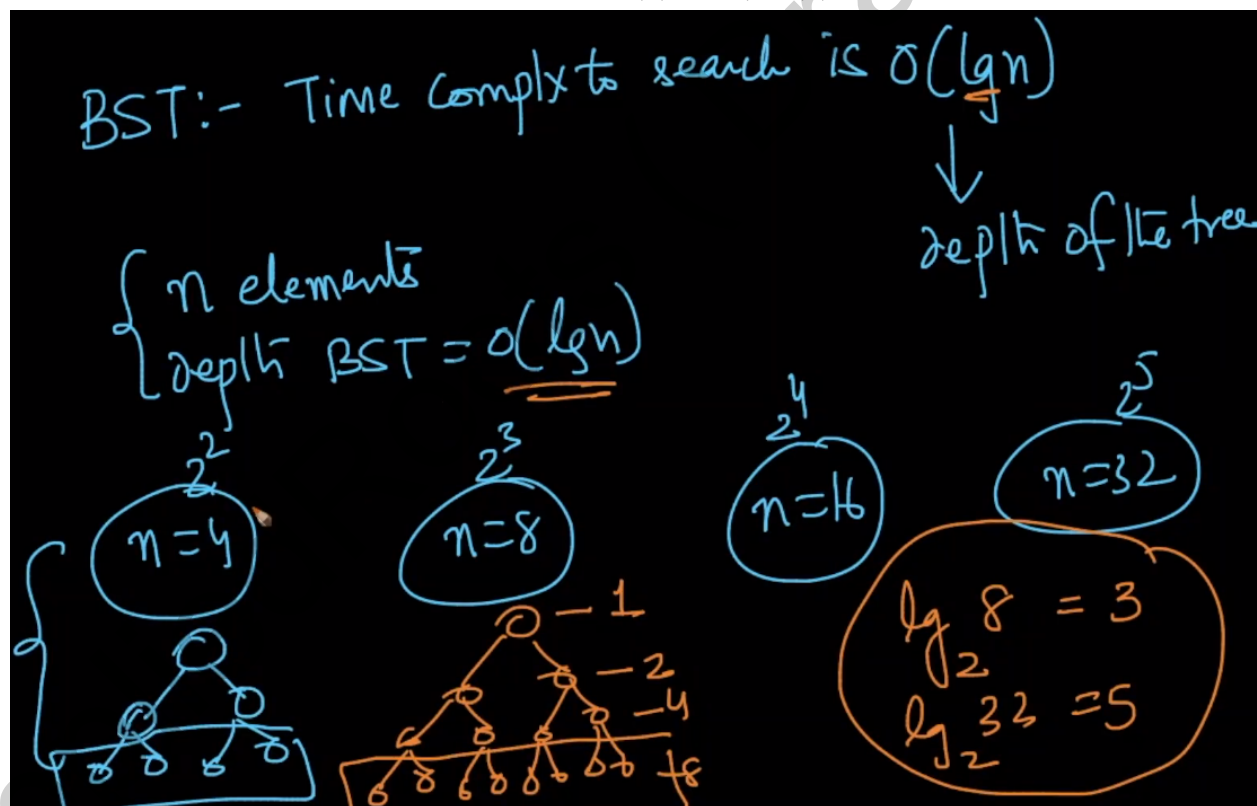 BST:- Time Complx to search is O(lgn)
depth of the tree
n elements
depth BST = O(lgn)
2^2
2^3
2^4
2^5
n=4
n=8
n=16
n=32
- 1
- 2
- 4
8
lg_2 8 = 3
lg_2 33 = 5